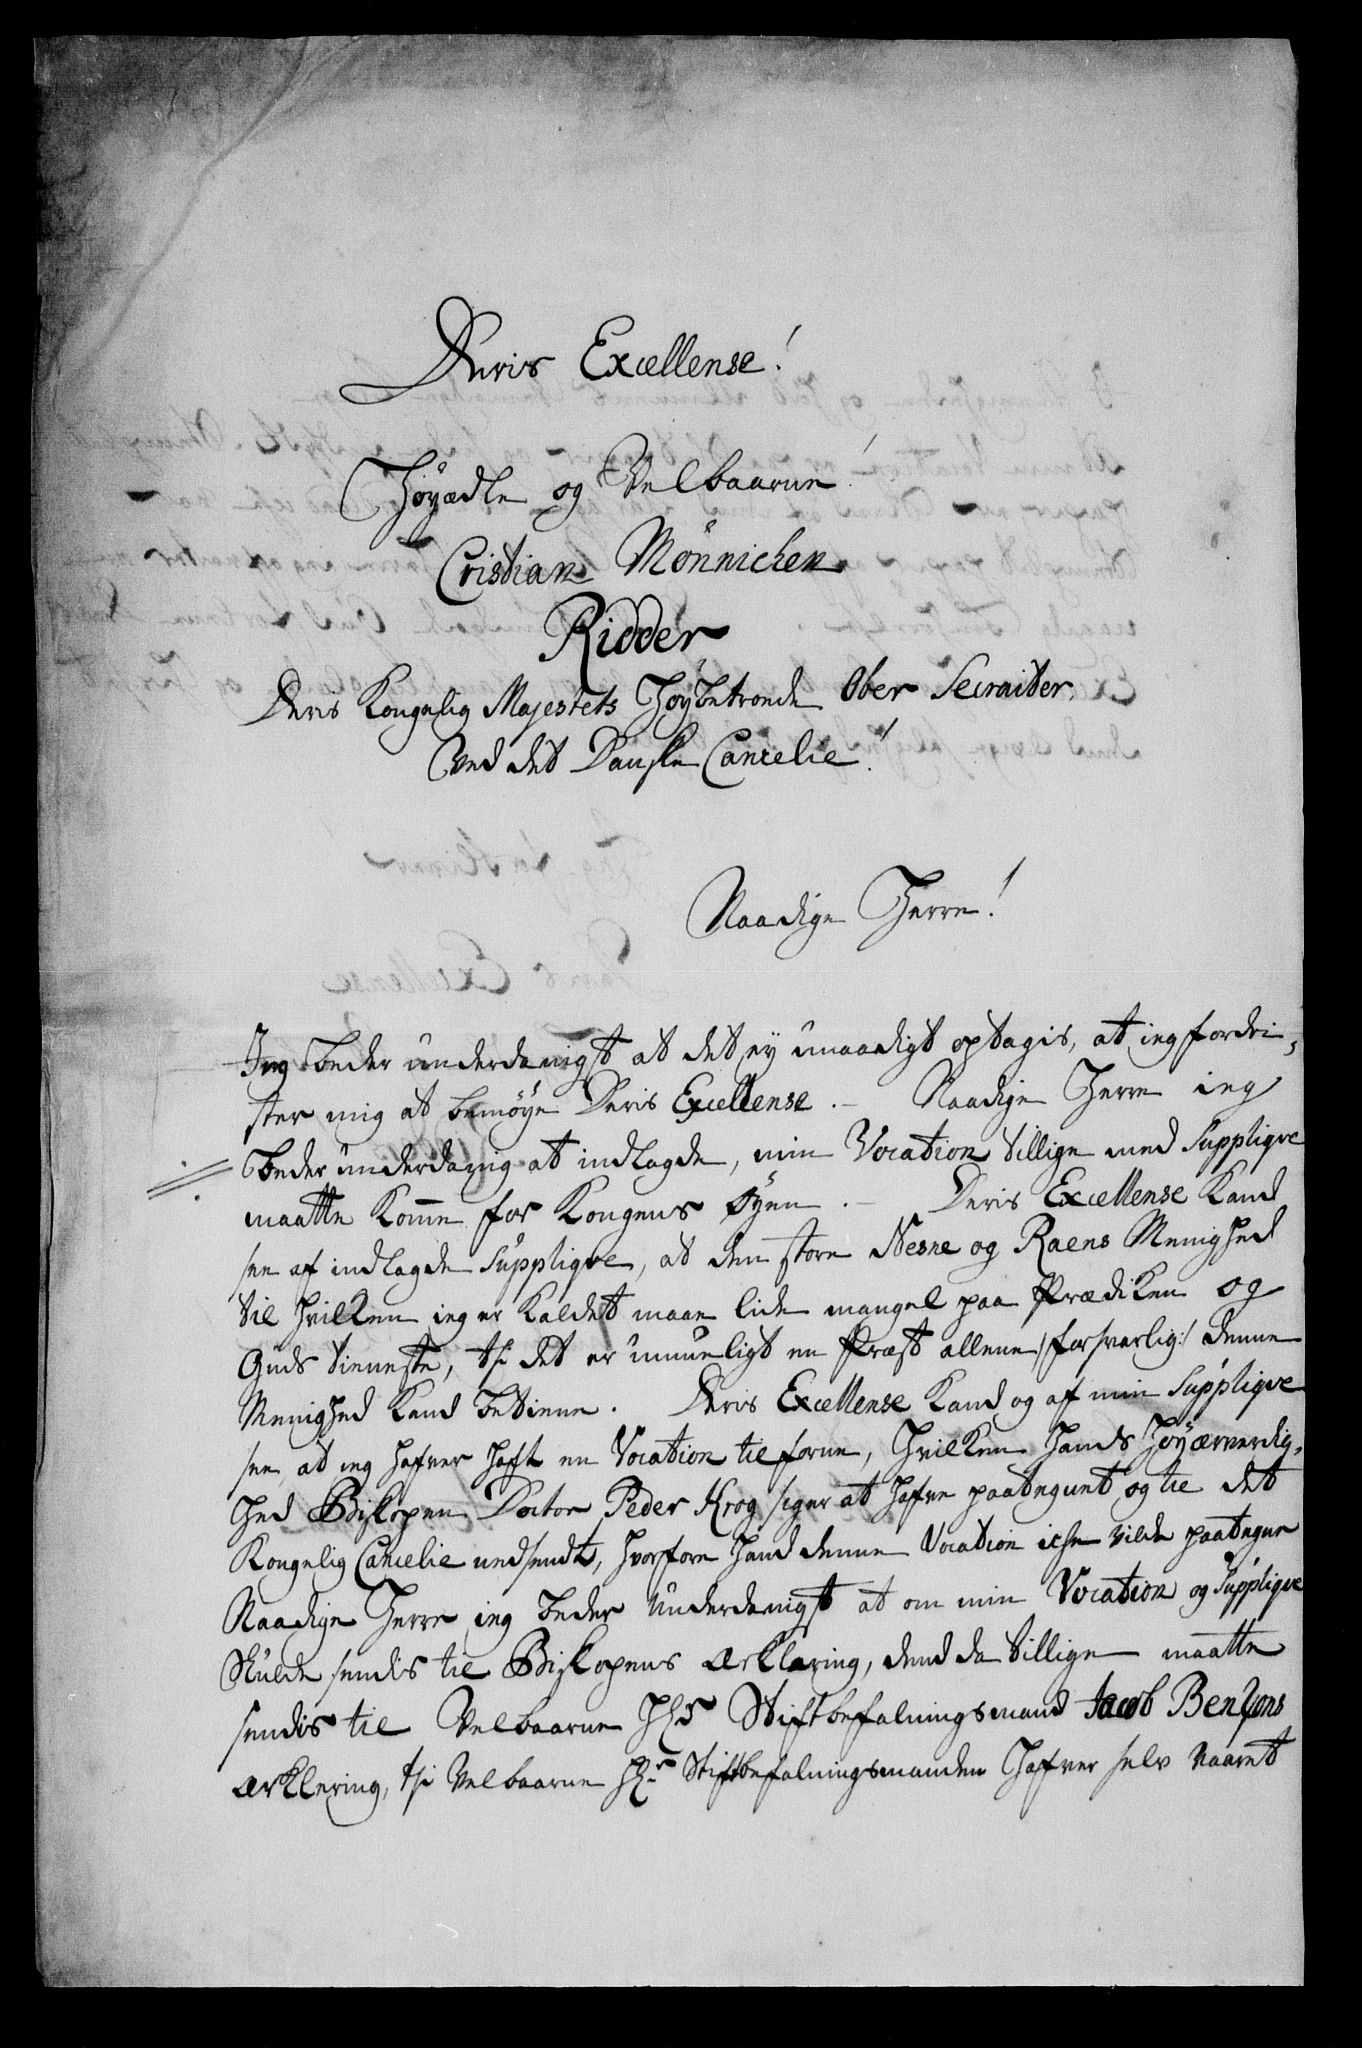 Deris Excellense!
Høyædle og Velbaarne!
Cristian Mönnichen
Ridder
Deris Kongelig Majestets Høybetroede Ober Secraiter.
Ved det Danske Cancelie!
Naadige Herre!
Jeg beder underdanigst at det ey unaadigt optagis, at ieg fordri-
ster mig at bemøye Deris Excellense. — Naadige Herre ieg
beder underdanig at indlagde, min Vocation tillige med Supplique
maatte Komme for Kongens Øyen. — Deris Excellense Kand
see af indlagde Supplique, at den store Nesne og Raens Menighed
til hvilken ieg er Kaldet maae lide mangel paa Prædiken og
Guds tieneste, thi det er umueligt en Præst allene /:forsvarlig:/ denne
Menighed Kand betiene. Deris Excellense Kand og af min Supplique
see at ieg hafver haft en Vocation tilforne, hvilken Hands Høyærverdig-
hed Biskopen Doctor Peder Krog siger at hafve paategnet og til det
Kongelig Cancelie nedsendt, hvorfore hand denne Vocation iche vilde paategne
Naadige Herre ieg beder Underdanigst at om min Vocation og Supplique
Skulde sendis til Biskopens ærklaring, dend da tillige maatte
sendis til Velbaarne Hr Stiftbefalningsmand Jacob Benzons
ærklering, thi Velbaarne Hr Stiftbefalningsmanden hafver selv vaaret